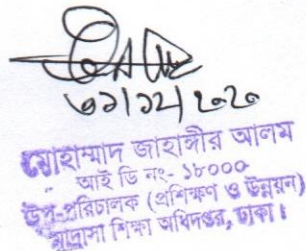 ৩১/১২/২০২০
মোহাম্মাদ জাহাঙ্গীর আলম
আই ডি নং- ১৮০০০
উপ-পরিচালক (প্রশিক্ষণ ও উন্নয়ন)
মাদ্রাসা শিক্ষা অধিদপ্তর, ঢাকা।